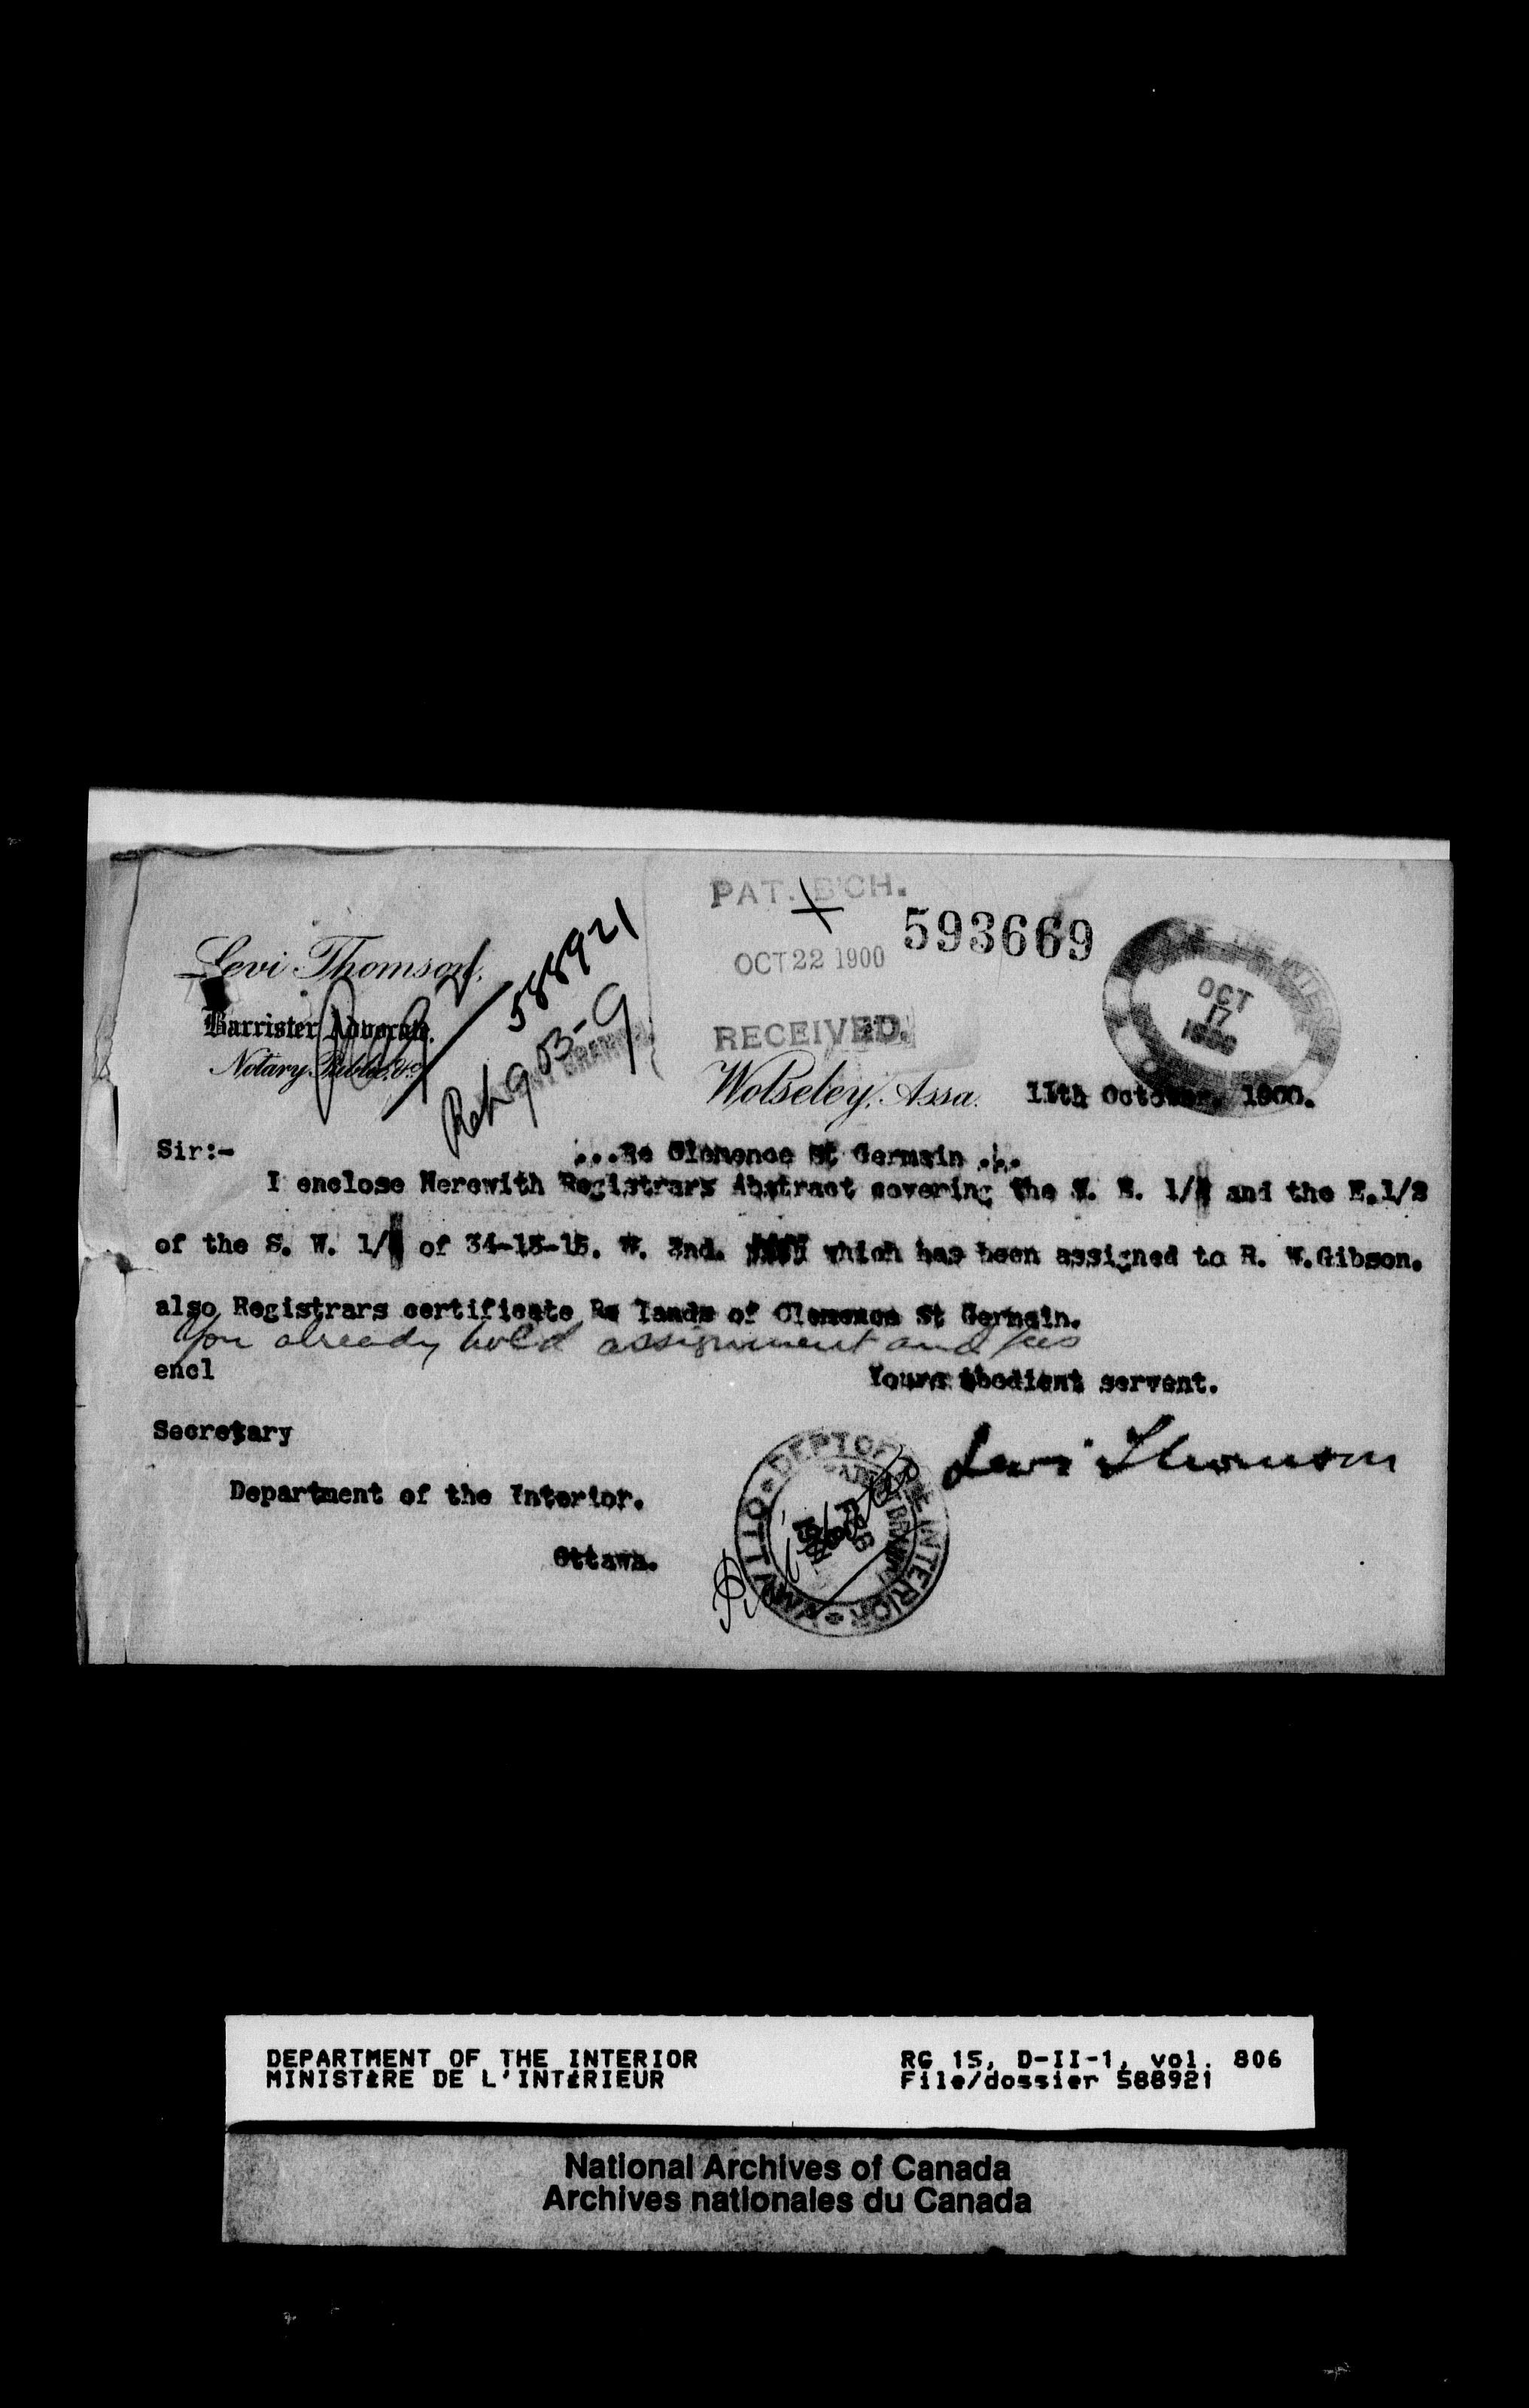 PAT. B'CH.
593669
OCT 22 1900
RECEIVED.
OCT
17
Levi Thomson,
Barrister, Advocate,
Notary Public, &c.
588921
Ref 903-9
Wolseley, Assa. 11th October, 1900.
Sir:- ...Re Clemence St Germain ...
I enclose Herewith Registrars Abstract covering the E. 1/4 and the E.1/2
of the S. W. 1/4 of 34-15-15. W. 2nd. which has been assigned to R. W.Gibson.
also Registrars certificate Re lands of Clemence St Germain.
You already hold assignment and fees
encl
Yours obedient servant.
Secretary
Levi Thomson
Department of the Interior.
Ottawa.
DEPT OF THE INTERIOR
OTTAWA
DEPARTMENT OF THE INTERIOR RG 15, D-II-1, vol. 806
MINISTÈRE DE L'INTÉRIEUR File/dossier 588921
National Archives of Canada
Archives nationales du Canada